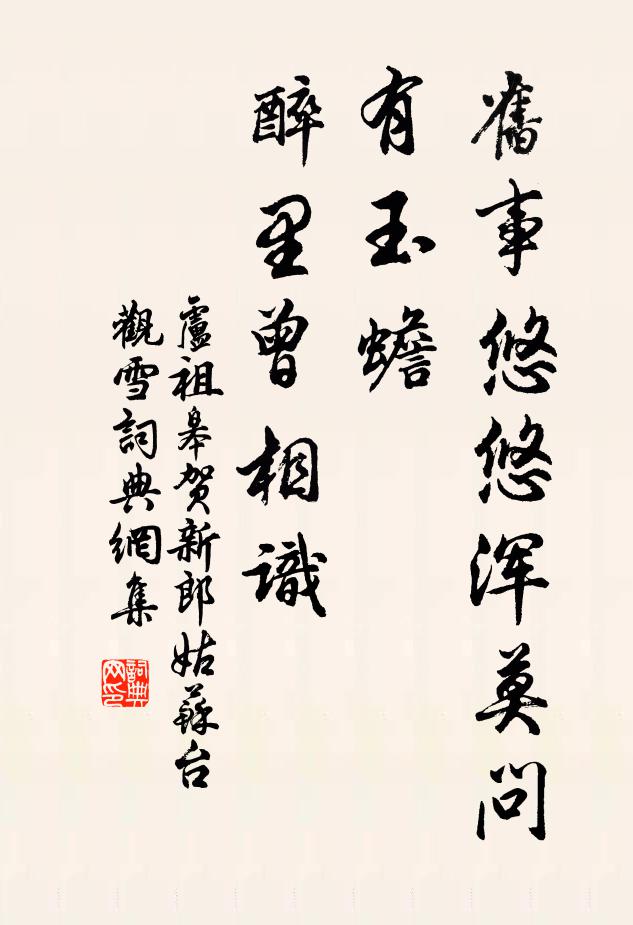 舊事悠悠浑莫问
有玉蟾
醉里曾相識
盧祖皋贺新郎姑蘇台
觀雪詞典網集
詞典网印